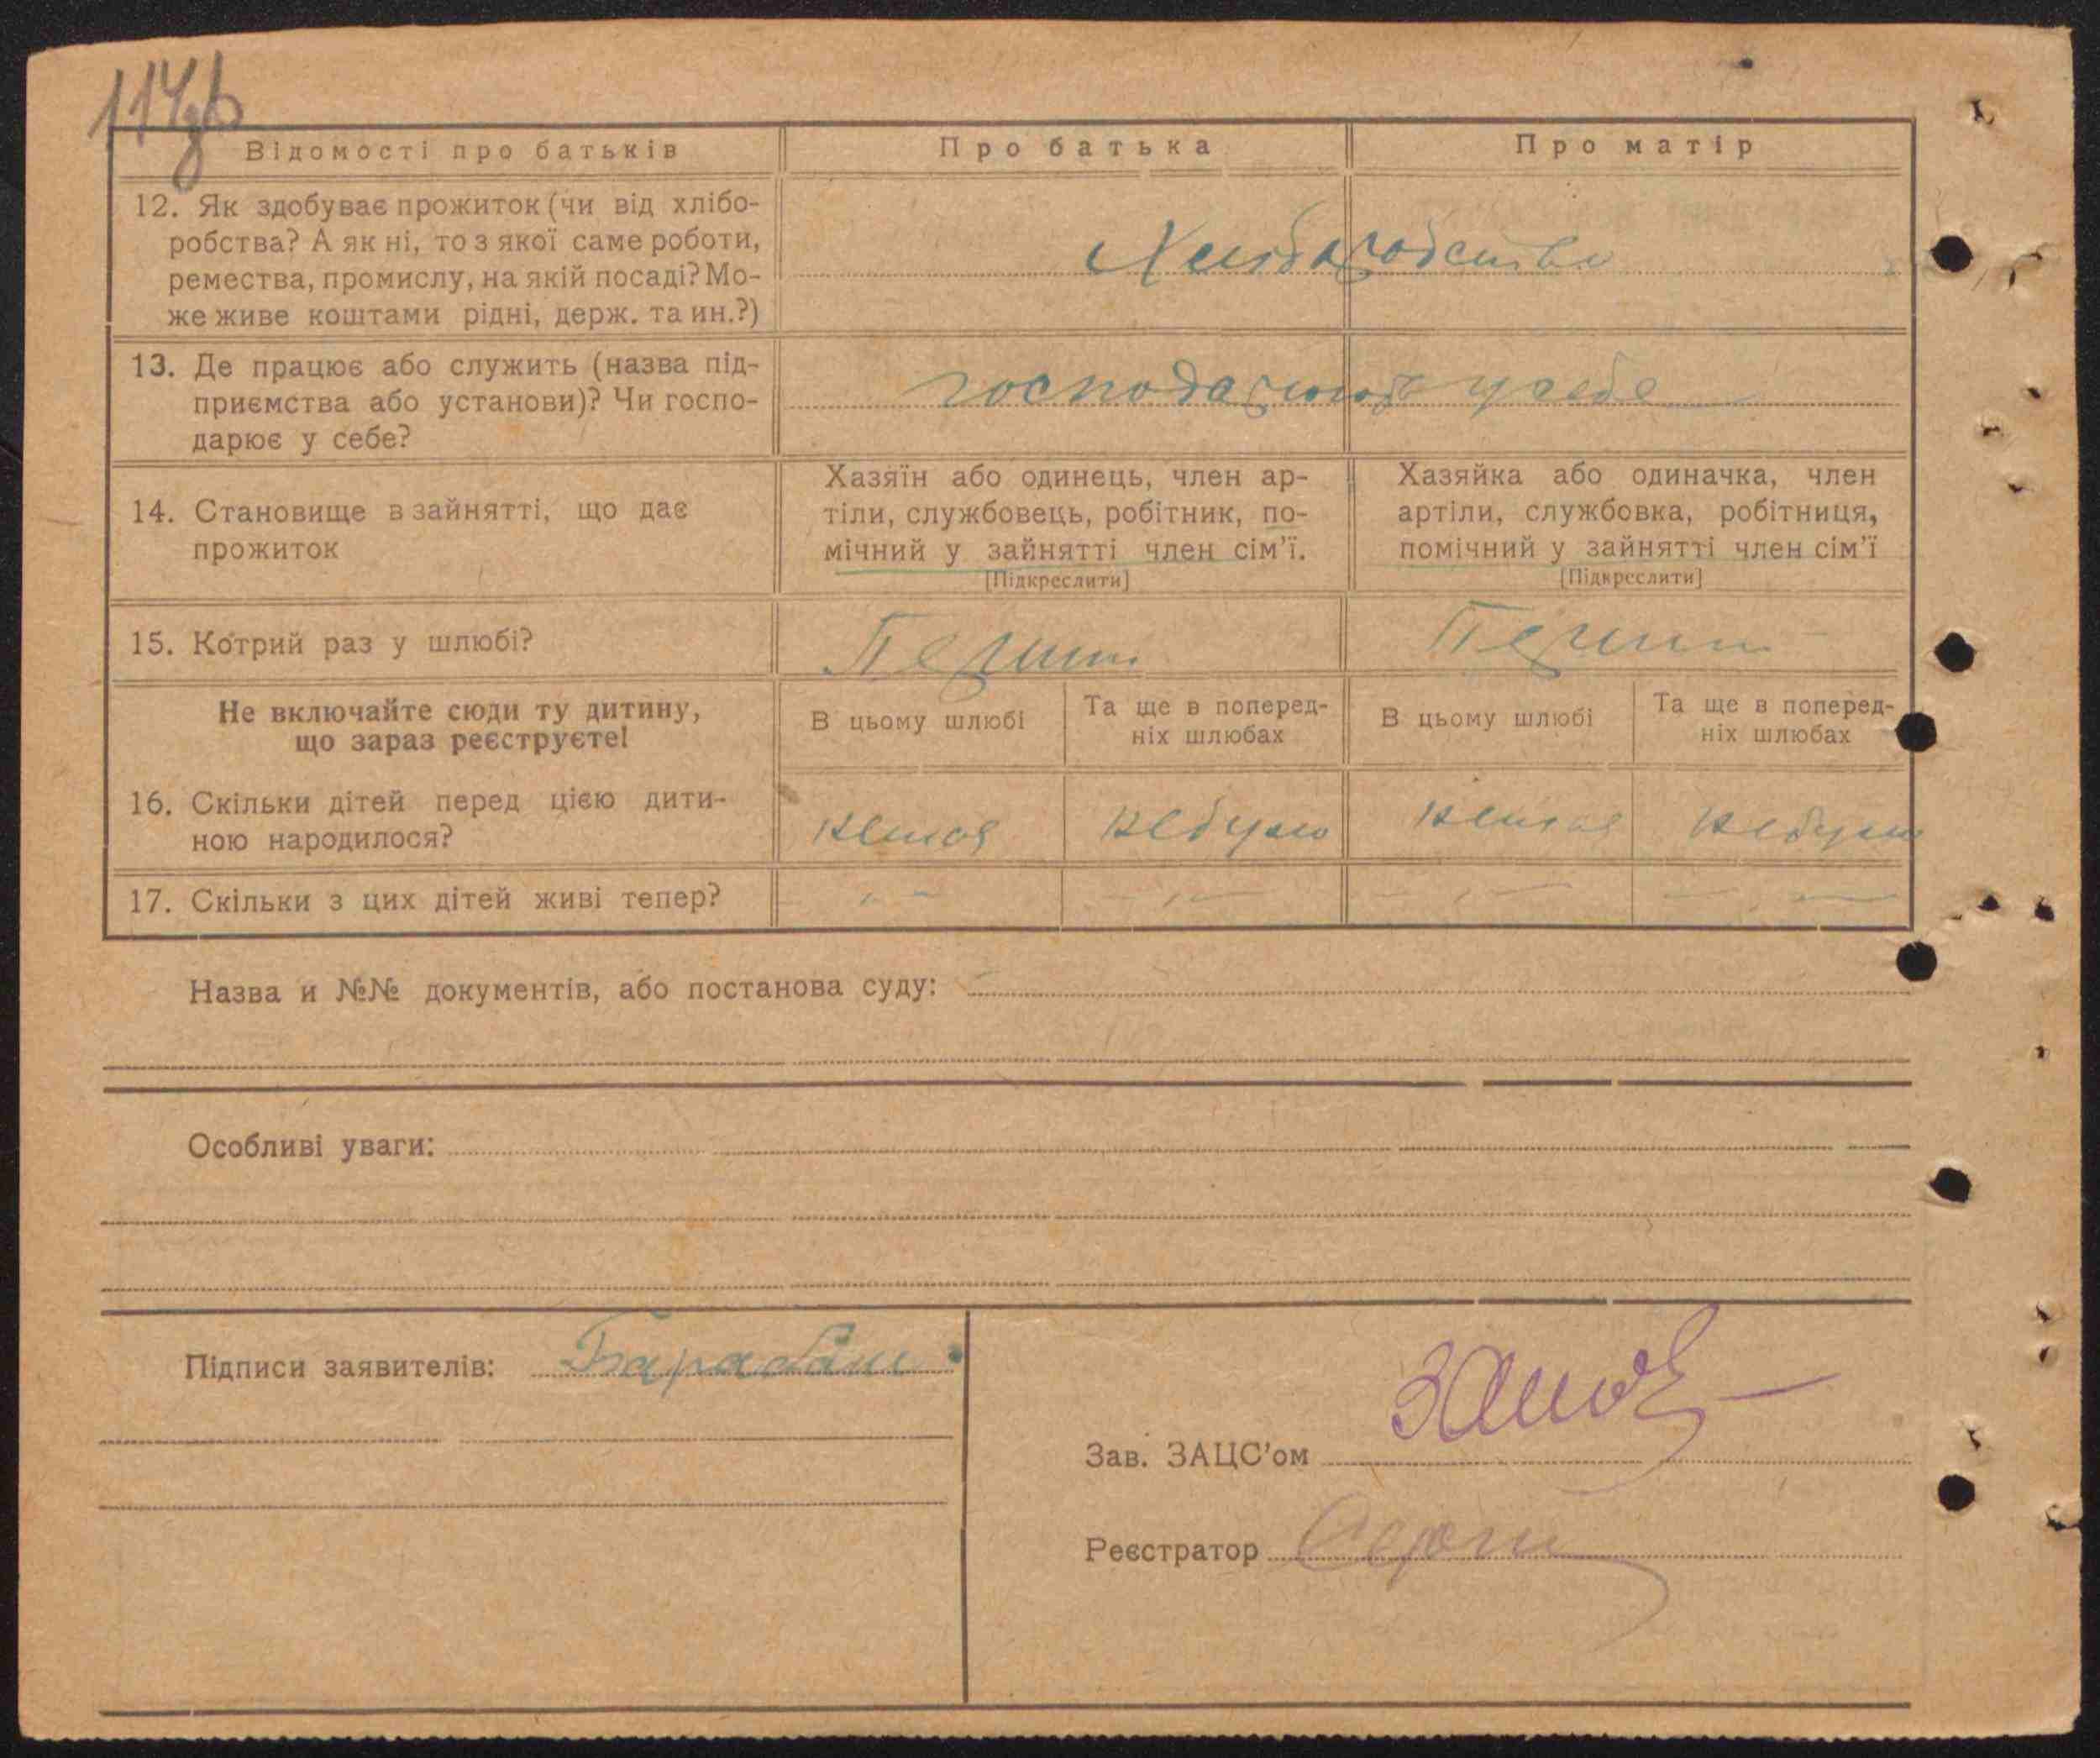 114зв
Відомості про батьків
Про батька
Про матір
12. Як здобуває прожиток (чи від хлібо-
робства? А як ні, то з якої саме роботи,
ремества, промислу, на якій посаді? Мо-
же живе коштами рідні, держ. та ин.?)
Хліборобство
13. Де працює або служить (назва під-
приємства або установи)? Чи госпо-
дарює у себе?
господарюють у себе
14. Становище в зайнятті, що дає
прожиток
Хазяїн або одинець, член ар-
тіли, службовець, робітник, по-
мічний у зайнятті член сім'ї.
[Підкреслити]
Хазяйка або одиначка, член
артіли, службовка, робітниця,
помічний у зайнятті член сім'ї
[Підкреслити]
15. Котрий раз у шлюбі?
Перший
Перший
Не включайте сюди ту дитину,
що зараз реєструєте!
В цьому шлюбі
Та ще в поперед-
ніх шлюбах
В цьому шлюбі
Та ще в поперед-
ніх шлюбах
16. Скільки дітей перед цією дити-
ною народилося?
немає
небуло
немає
небуло
17. Скільки з цих дітей живі тепер?
Назва и №№ документів, або постанова суду:
Особливі уваги:
Підписи заявителів: Барабаш
Зав. ЗАЦС'ом
Реєстратор